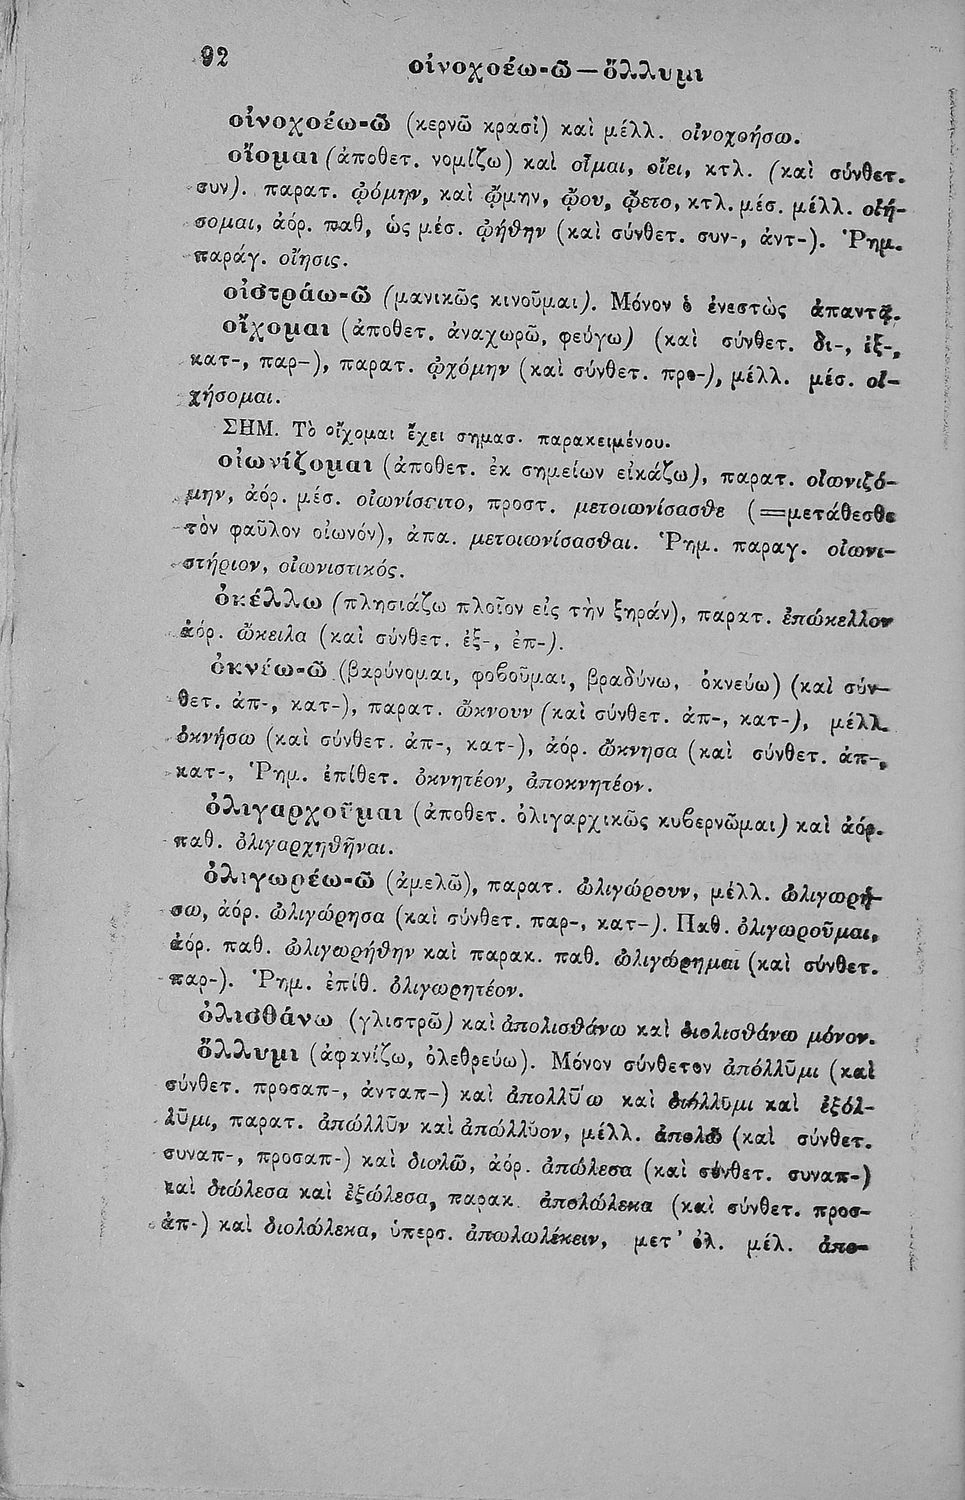 92
οἰνοχοέω-ῶ — ὄλλυμι
οἰνοχοέω-ῶ (κερνῶ κρασί) καὶ μέλλ. οἰνοχοήσω.
οἴομαι (ἀποθετ. νομίζω) καὶ οἶμαι, οἴει, κτλ. (καὶ σύνθετ.
συν). παρατ. ᾠόμην, καὶ ᾤμην, ᾤου, ᾤετο, κτλ. μέσ. μέλλ. οἰή-
σομαι, ἀόρ. παθ, ὡς μέσ. ᾠήθην (καὶ σύνθετ. συν-, ἀντ-). Ῥημ.
παράγ. οἴησις.
οἰστράω-ῶ (μανικῶς κινοῦμαι). Μόνον ὁ ἐνεστὼς ἀπαντᾷ.
οἴχομαι (ἀποθετ. ἀναχωρῶ, φεύγω) (καὶ σύνθετ. δι-, ἐξ-,
κατ-, παρ-), παρατ. ᾠχόμην (καὶ σύνθετ. προ-), μέλλ. μέσ. οἰ-
χήσομαι.
ΣΗΜ. Τὸ οἴχομαι ἔχει σημασ. παρακειμένου.
οἰωνίζομαι (ἀποθετ. ἐκ σημείων εἰκάζω), παρατ. οἰωνιζό-
μην, ἀόρ. μέσ. οἰωνίσαιτο, προστ. μετοιωνίσασθε (=μετάθεσθε
τὸν φαῦλον οἰωνόν), ἀπα. μετοιωνίσασθαι. Ῥημ. παραγ. οἰωνι-
στήριον, οἰωνιστικός.
ὀκέλλω (πλησιάζω πλοῖον εἰς τὴν ξηράν), παρατ. ἐπώκελλον
ἀόρ. ὤκειλα (καὶ σύνθετ. ἐξ-, ἐπ-).
ὀκνέω-ῶ (βαρύνομαι, φοβοῦμαι, βραδύνω, ὀκνεύω) (καὶ σύν-
θετ. ἀπ-, κατ-), παρατ. ὤκνουν (καὶ σύνθετ. ἀπ-, κατ-), μέλλ.
ὀκνήσω (καὶ σύνθετ. ἀπ-, κατ-), ἀόρ. ὤκνησα (καὶ σύνθετ. ἀπ-,
κατ-, Ῥημ. ἐπίθετ. ὀκνητέον, ἀποκνητέον.
ὀλιγαρχοῦμαι (ἀποθετ. ὀλιγαρχικῶς κυβερνῶμαι) καὶ ἀόρ.
παθ. ὀλιγαρχηθῆναι.
ὀλιγωρέω-ῶ (ἀμελῶ), παρατ. ὠλιγώρουν, μέλλ. ὠλιγωρή-
σω, ἀόρ. ὠλιγώρησα (καὶ σύνθετ. παρ-, κατ-). Παθ. ὀλιγωροῦμαι,
ἀόρ. παθ. ὠλιγωρήθην καὶ παρακ. παθ. ὠλιγώρημαι (καὶ σύνθετ.
παρ-). Ῥημ. ἐπίθ. ὀλιγωρητέον.
ὀλισθάνω (γλιστρῶ) καὶ ἀπολισθάνω καὶ διολισθάνω μόνον.
ὄλλυμι (ἀφανίζω, ὀλεθρεύω). Μόνον σύνθετον ἀπόλλῦμι (καὶ
σύνθετ. προσαπ-, ἀνταπ-) καὶ ἀπολλύω καὶ διόλλῦμι καὶ ἐξόλ-
λῦμι, παρατ. ἀπώλλῦν καὶ ἀπώλλῦον, μέλλ. ἀπολῶ (καὶ σύνθετ.
συναπ-, προσαπ-) καὶ διολῶ, ἀόρ. ἀπώλεσα (καὶ σύνθετ. συναπ-)
καὶ διώλεσα καὶ ἐξώλεσα, παρακ. ἀπολώλεκα (καὶ σύνθετ. προσ-
απ-) καὶ διολώλεκα, ὑπερσ. ἀπωλωλέκειν, μετ' ὀλ. μέλ. ἀπο-